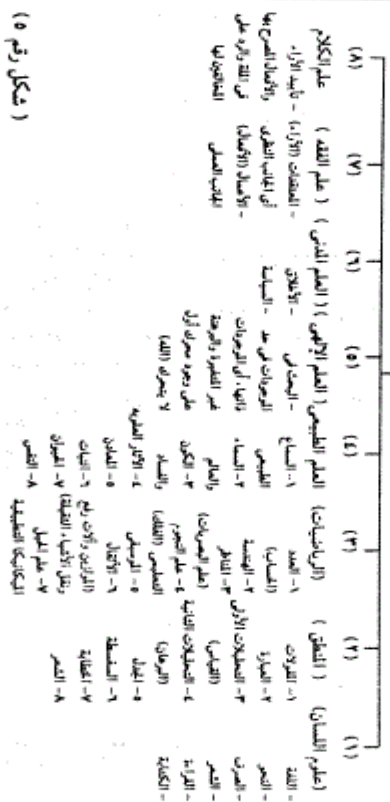 (١)
(علوم اللسان)
- اللغة
- النحو
- الصرف
- الشعر
- القراءة
- الكتابة
(٢)
( المنطق )
١- المقولات
٢- العبارة
٣- التحليلات الأولى
(القياس)
٤- التحليلات الثانية
(البرهان)
٥- الجدل
٦- السفسطة
٧- الخطابة
٨- الشعر
(٣)
(الرياضيات)
١- العدد
(الحساب)
٢- الهندسة
٣- المناظر
(علم البصريات)
٤- علم النجوم
التعليمى (الفلك)
٥- الموسيقى
٦- الأثقال
(الموازين وآلات رفع
ونقل الأشياء الثقيلة)
٧- علم الحيل
الميكانيكا التطبيقية
(٤)
العلم الطبيعى
١- السماع
الطبيعى
٢- السماء
والعالم
٣- الكون
والفساد
٤- الآثار العلوية
٥- المعادن
٦- النبات
٧- الحيوان
٨- النفس
(٥)
( العلم الإلهى )
- البحث فى
الموجودات فى حد
ذاتها، أى الموجودات
غير المتغيرة والبرهنة
على وجود محرك أول
لا يتحرك (الله)
(٦)
( العلم المدنى )
- الأخلاق
- السياسة
(٧)
( علم الفقه )
- المعتقدات (الآراء)
أى الجانب النظرى
- الأعمال (الأفعال)
الجانب العملى
(٨)
علم الكلام
- تأييد الآراء
والأفعال المصرح بها
فى الملة والرد على
المخالفين لها
( شكل رقم ٥ )